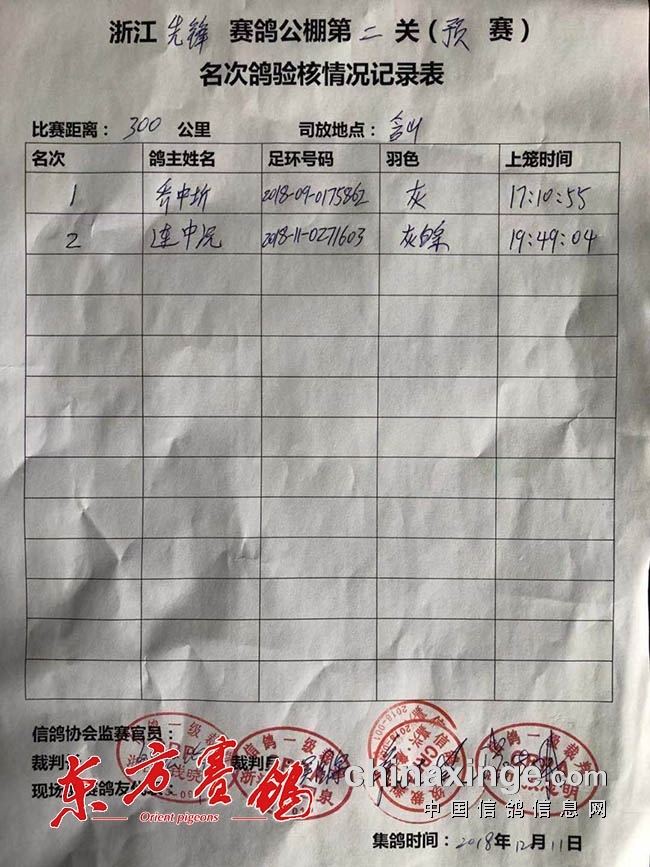 浙江 先锋 赛鸽公棚第 二 关(预 赛)
名次鸽验核情况记录表
比赛距离: 300 公里 司放地点: 含山
名次 鸽主姓名 足环号码 羽色 上笼时间
1 乔中圻 2018-09-0175862 灰 17:10:55
2 连中况 2018-11-0271603 灰白条 19:49:04
信鸽协会监赛官员:
裁判
现场 赛鸽友代表
东方赛鸽
Orient pigeons
chinaxinge.com
中国信鸽信息网
集鸽时间: 2018年12月11日